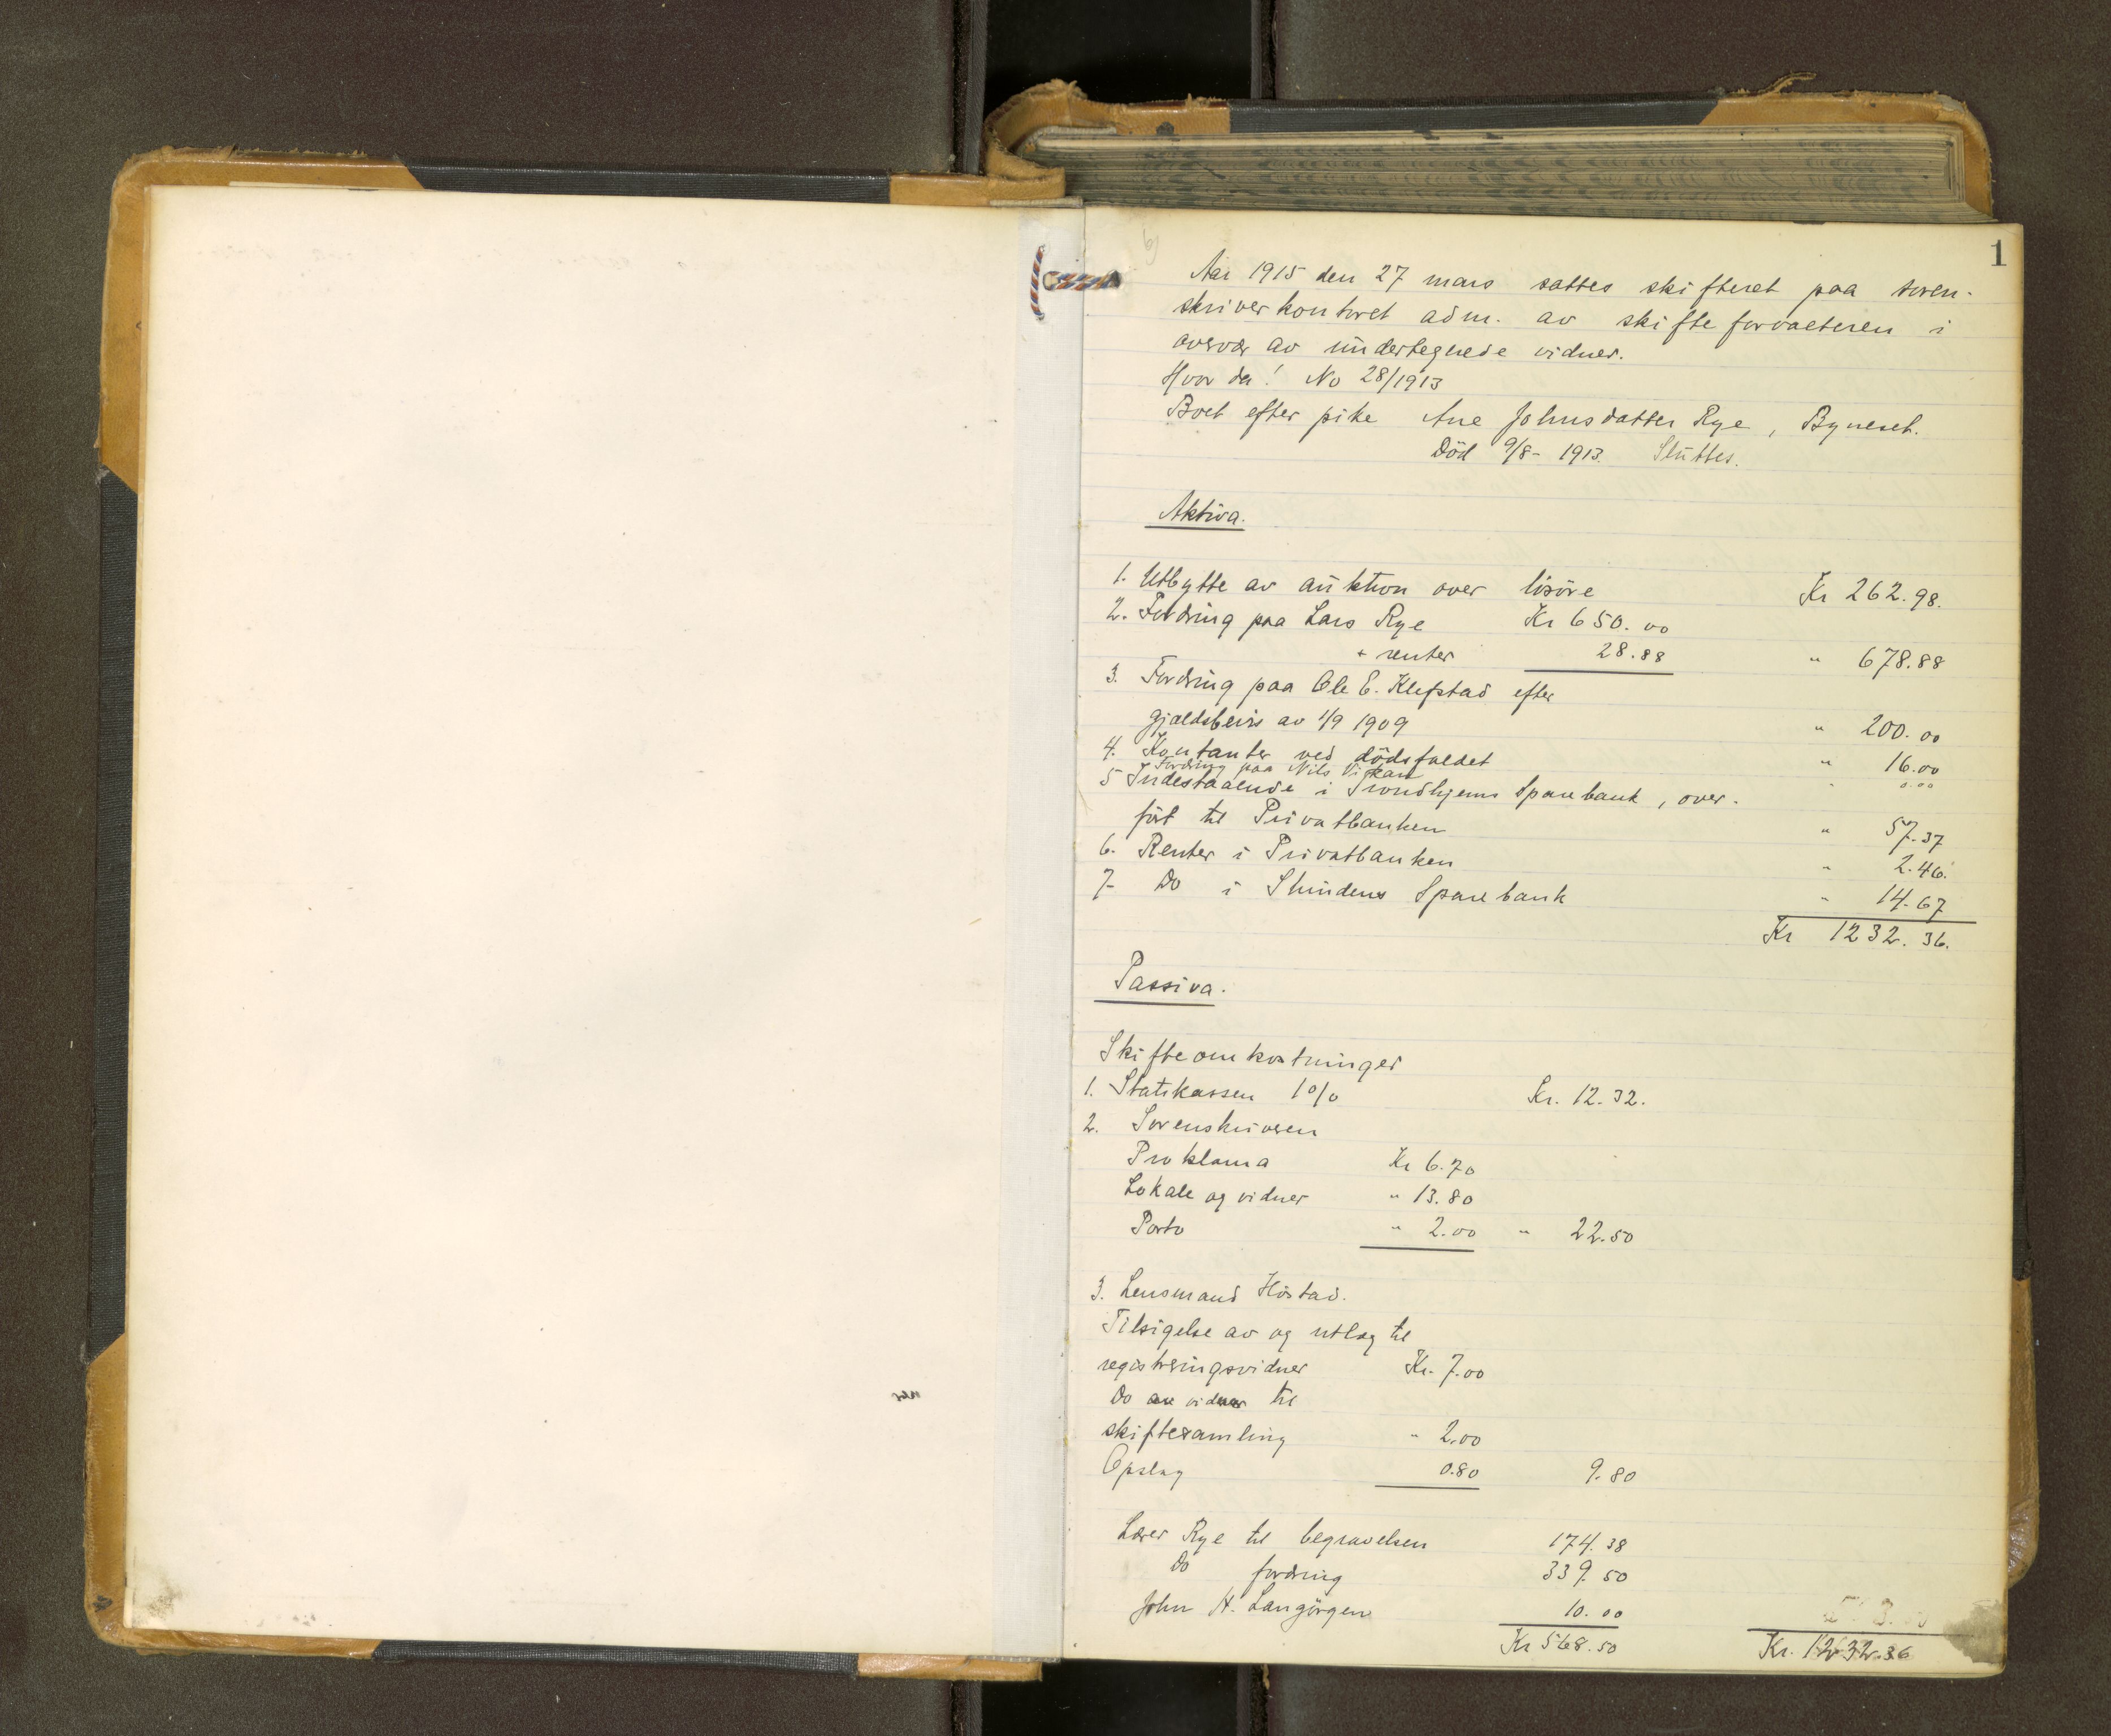 1
Aar 1915 den 27 mars sattes skifteret paa soren-
skriverkontoret adm. av skifteforvalteren i
overvær av undertegnede vidner.
Hvor da! No 28/1913
Boet efter pike Ane Johnsdatter Rye, Byneset.
Död 9/8- 1913. Sluttes.
Aktiva.
1. Utbytte av auktion over lösöre Kr 262.98.
2. Fordring paa Lars Rye Kr 650.00
+ renter 28.88 " 678.88
3. Fordring paa Ole E. Klefstad efter
gjældsbevis av 1/9 1909 " 200.00
4. Kontanter ved dödsfaldet " 16.00
Fordring paa Nils Vigkan " 0.00
5 Indestaaende i Trondhjems Sparebank, over-
fört til Privatbanken " 57.37
6. Renter i Privatbanken " 2.46.
7- Do i Strindens Sparebank " 14.67
Kr 1232.36.
Passiva.
Skifteomkostninger
1. Statskassen 1% Kr. 12.32.
2. Sorenskriveren
Proklama Kr 6.70
Lokale og vidner " 13.80
Porto " 2.00 " 22.50
3. Lensmand Höstad.
Tilsigelse av og utlæg til
registreringsvidner Kr. 7.00
Do av vidner til
skiftesamling " 2.00
Opslag 0.80 9.80
Lærer Rye til begravelsen 174.38
Do fordring 339.50
John H. Langörgen 10.00
Kr 568.50 Kr. 1232.36